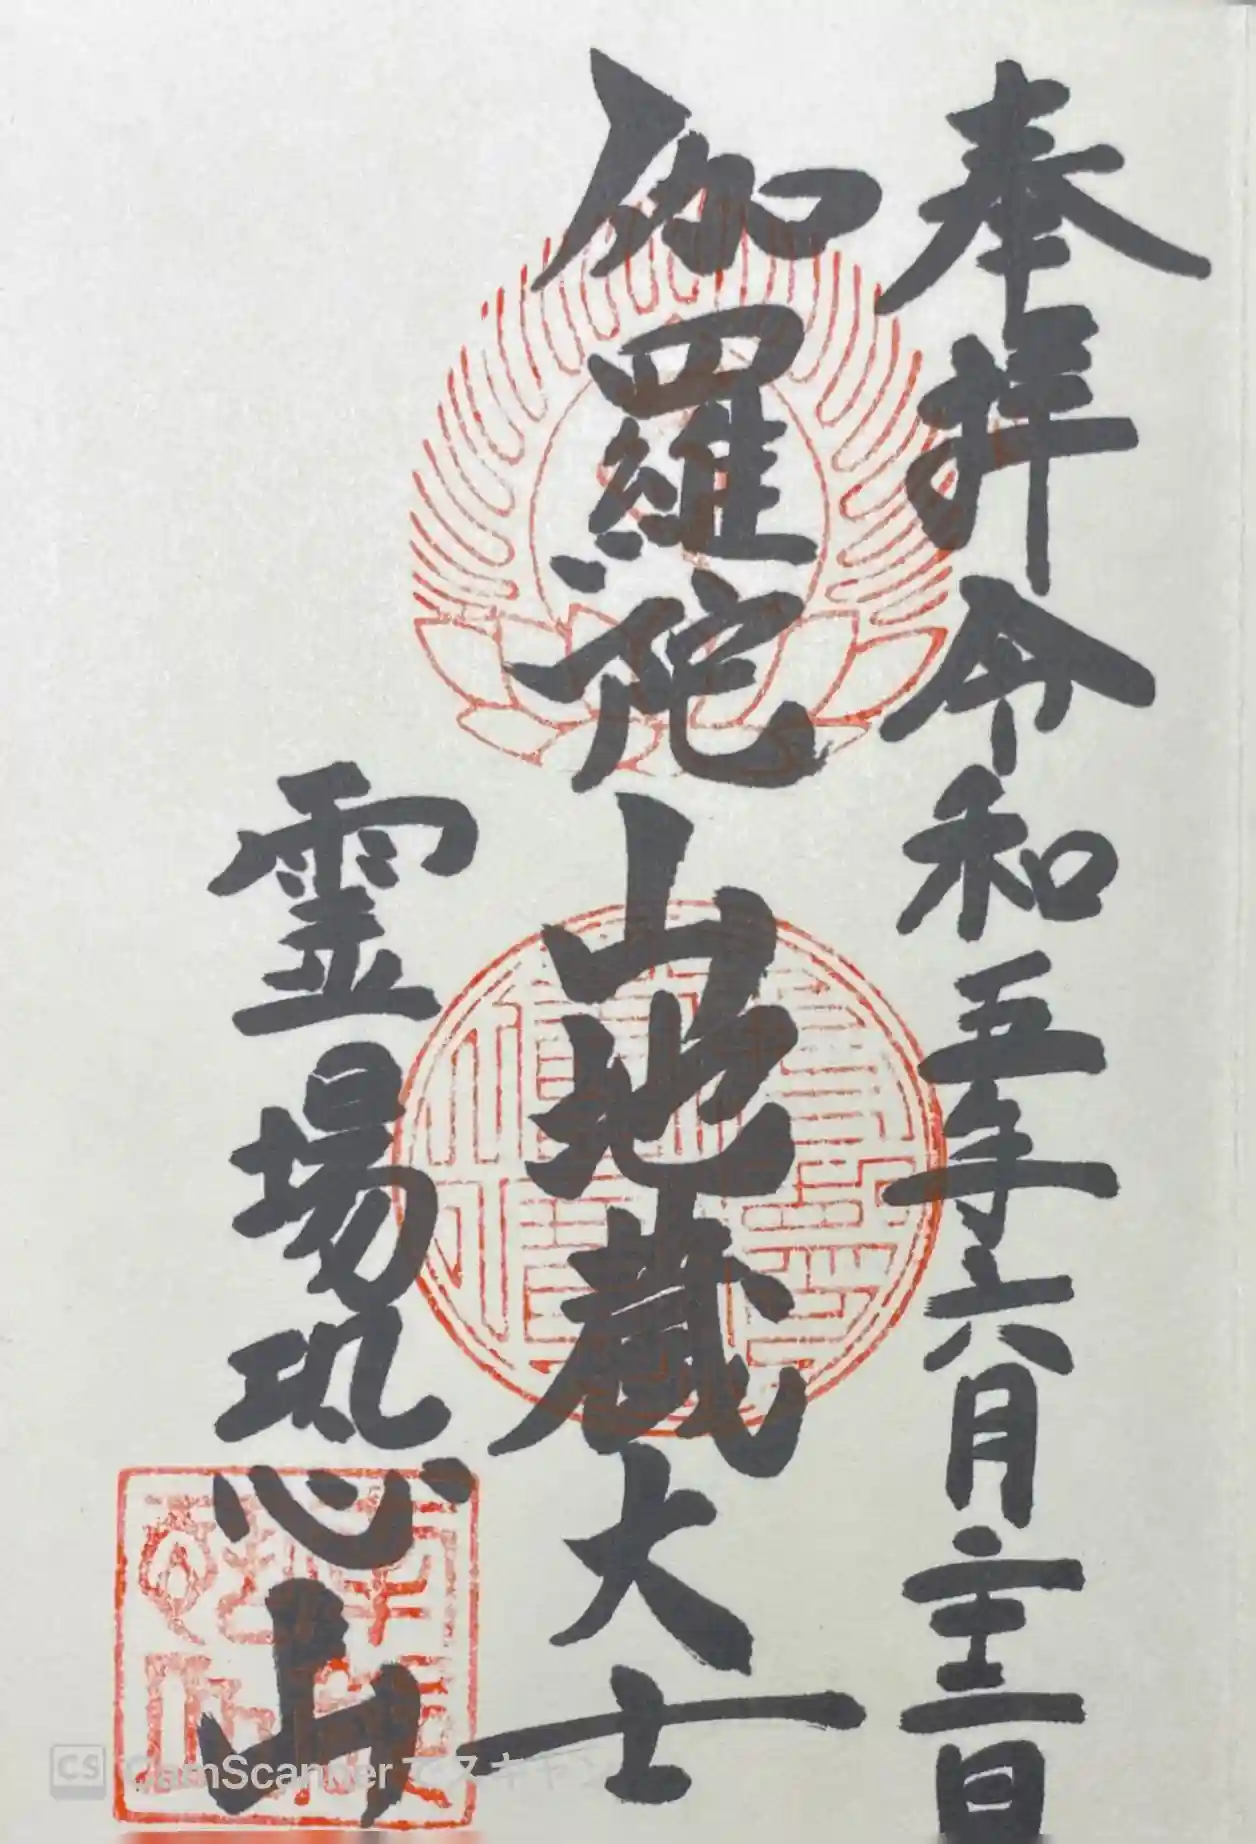 奉拝令和五年六月十三日
伽羅陀山地蔵大士
霊場恐山
CS CamScanner でスキャン